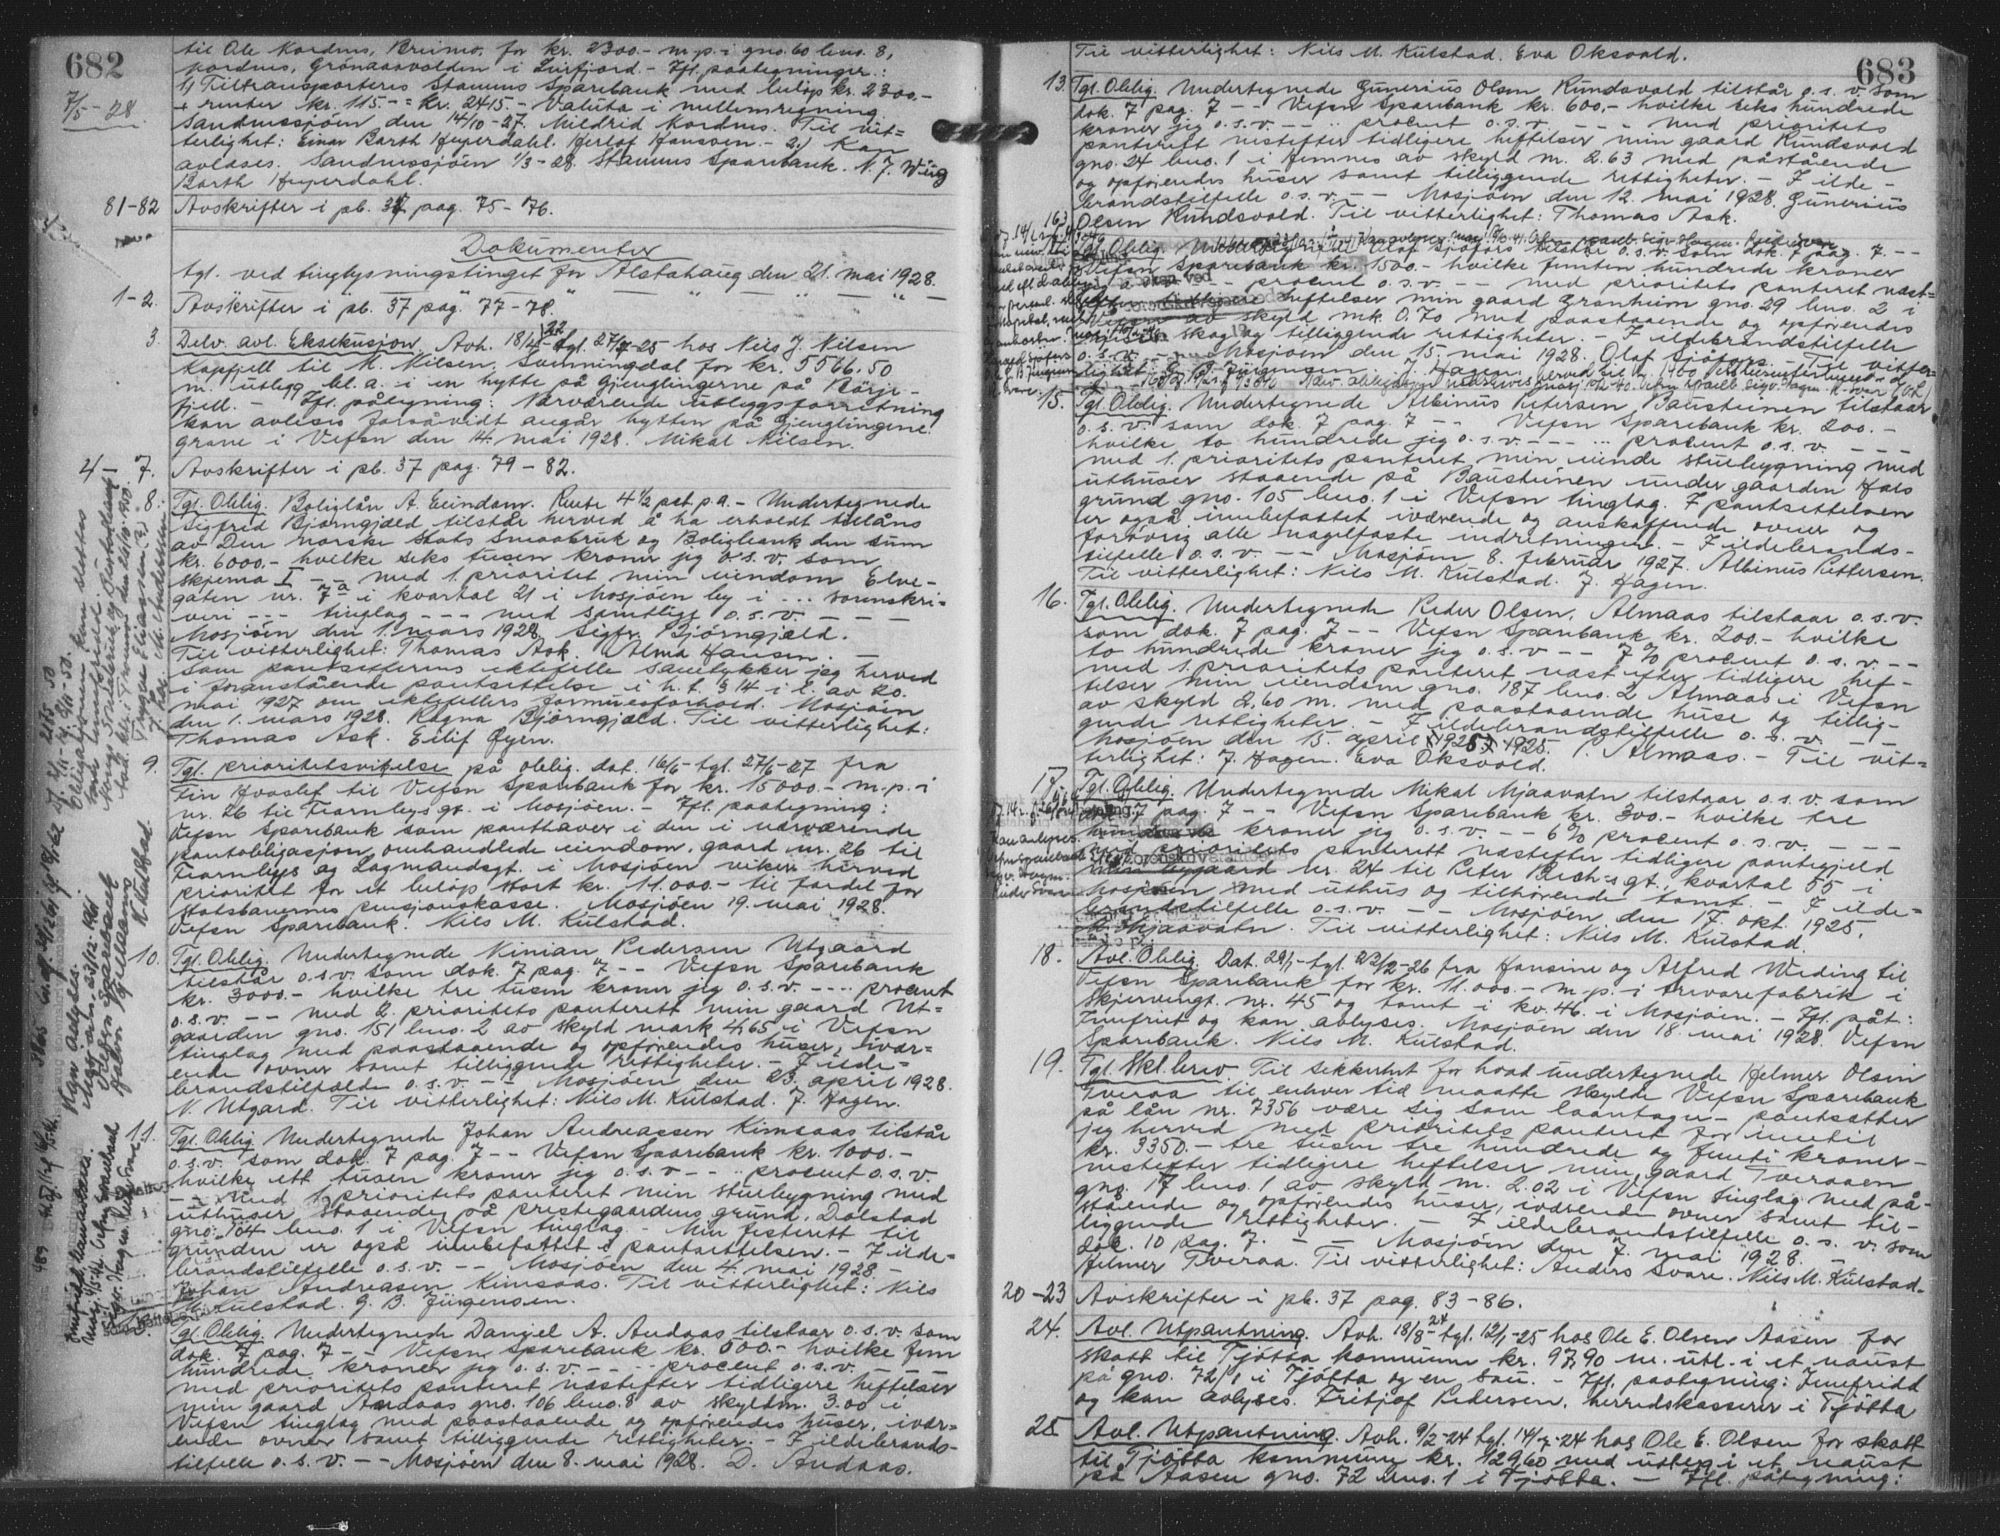 682
7/5-28
til Ole Kordnes, Breimo, for kr. 2300.- m.p. i gno. 60 bno. 8,
Nordnes, Grönaasvolden i Leirfjord. - Ifl. paategninger:
1) Tiltransporteres Stamnes Sparebank med beløp kr. 2300.-
+ renter kr. 115.- = kr. 2415.- Valuta i mellemregning
Sandnessjöen den 14/10-27. Mildrid Kordnes. Til vit=
terlighet: Einar Barth Heyerdahl. Herlof Hanssen. - 2) Kan
avlæses. Sandnessjöen 1/3-28. Stamnes Sparebank. N. J. Wiig
Barth Heyerdahl.
81-82 Avskrifter i pb. 37 pag. 75-76.
Dokumenter
tgl. ved tinglysningstinget for Alstahaug den 21. mai 1928.
1-2. Avskrifter i pb. 37 pag. 77-78.
3. Delv. avl. Eksekusjon. Avh. 18/4-22 tgl. 27/4-25 hos Nils J. Nilsen
Kapfjell til M. Nilsen, Sumningdal for kr. 5566.50
m. utlegg bl.a. i en hytte på Gjenglingerne på Börje-
fjell. - Ifl. påtegning: Nærværende utleggsforretning
kan avleses forsåvidt angår hytten på Gjenglingene.
Grane i Vefsn den 14. mai 1928. Mikal Nilsen.
4-7. Avskrifter i pb. 37 pag. 79-82.
8. Tgl. Oblig. Boliglån A. Eiendom. Rente 4 1/2 pct. p.a. - Undertegnede
Sigfred Bjørngjæld tilstår herved å ha erholdt tillåns
av Den norske Stats Småbruk og Boligbank den sum
kr. 6000.- hvilke seks tusen kroner jeg o.s.v. som
skjema I - - med 1. prioritet min eiendom Elve-
gaten nr. 7a i kvartal 21 i Mosjöen by i ... sorenskri-
veri --- tinglag --- med samtlige o.s.v. ---
Mosjöen den 1. mars 1928. Sigfr. Björngjæld.
Til vitterlighet: Thomas Ask. Alma Hansen. -
Som pantsetterens ektefelle samtykker jeg herved
i foranstående pantsettelse i h.t. § 14 i l. av 20.
mai 1927 om ektefellers formuesforhold. Mosjöen
den 1. mars 1928. Ragna Björngjæld. Til vitterlighet:
Thomas Ask. Eilif Øyen.
9. Tgl. prioritetsvikelse på oblig. dat. 16/6-tgl. 27/6-27 fra
Finn Hvoslef til Vefsn Sparebank for kr. 15000.- m.p. i
nr. 26 til Fearnleys gt. i Mosjöen. - Ifl. paategning:
Vefsn Sparebank som panthaver i den i nærværende
pantobligasjon omhandlede eiendom, gaard nr. 26 til
Fearnleys og Lagmandsgt. i Mosjöen viker herved
prioritet for et beløp stort kr. 11.000.- til fordel for
Statsbanernes pensjonskasse. Mosjöen 19. mai 1928.
Vefsn Sparebank. Nils M. Kulstad.
10. Tgl. Oblig. Undertegnede Kinian Pedersen Utgaard
tilstår o.s.v. som dok. 7 pag. 7 -- Vefsn Sparebank
kr. 3000.- hvilke tre tusen kroner jeg o.s.v. --- procent
o.s.v. -- med 2. prioritets panterett min gaard Ut=
gaarden gno. 151 bno. 2 av skyld mark 4,65 i Vefsn
tinglag med paastaaende og opförendes huser, ivær=
ende ovner samt tilliggende rettigheter. - I ilde=
brandstilfælde o.s.v. -- Mosjöen den 23. april 1928.
N. Utgard. Til vitterlighet: Nils M. Kulstad. J. Hagen.
11. Tgl. Oblig. Undertegnede Johan Andreassen Kimsaas tilstår
o.s.v. som dok. 7 pag. 7 -- Vefsn Sparebank kr. 1000.-
hvilke ett tusen kroner jeg o.s.v. -- procent o.s.v.
-- med 1. prioritets panteret min stuebygning med
uthuser staaende på prestegaardens grund, Dolstad
gno. 104 bno. 1 i Vefsn tinglag. - Min festerett til
grunden er også innbefattet i pantsettelsen. - I ilde=
brandstilfelle o.s.v. -- Mosjöen den 4. mai 1928. -
Johan Andreasen Kimsaas. Til vitterlighet: Nils
M. Kulstad. G. B. Jürgensen.
Tgl. Oblig. Undertegnede Daniel A. Andaas tilstaar o.s.v. som
dok. 7 pag. 7 -- Vefsn Sparebank kr. 500.- hvilke fem
hundrede kroner jeg o.s.v. -- procent o.s.v. --
med prioritets panteret næstefter tidligere heftelser
min gaard Andaas gno. 106 bno. 8 av skyldm. 3.00 i
Vefsn tinglag med paastaaende og opförendes huser, ivær=
ende ovner samt tilliggende rettigheter. - I ildebrands-
tilfelle o.s.v. -- Mosjöen den 8. mai 1928. D. Andaas.
683
Til vitterlighet: Nils M. Kulstad. Eva Oksvold.
13. Tgl. Oblig. Undertegnede Gunerius Olsen Kundsvold tilstår o.s.v. som
dok. 7 pag. 7 -- Vefsn Sparebank kr. 600.- hvilke seks hundrede
kroner jeg o.s.v. -- procent o.s.v. --- med prioritets
panterett nestefter tidligere heftelser min gaard Kundsvold
gno. 24 bno. 1 i Hemnes av skyld m. 2.63 med påstående
og opförendes huser samt tilliggende rettigheter. - I ilde-
brandstilfelle o.s.v. -- Mosjöen den 12. mai 1928. Gunerius
Olsen Kundsvold. Til vitterlighet: Thomas Ask.
Tgl. Oblig. Undertegnede Olaf Sjöfors tilstår o.s.v. som dok. 7 pag. 7. --
Vefsn Sparebank kr. 1500.- hvilke femten hundrede kroner
jeg o.s.v. -- procent o.s.v. -- med prioritets panteret næst=
efter tidligere heftelser min gaard Granheim gno. 29 bno. 2 i
Vefsn av skyld mk. 0.70 med paastaaende og opförendes
huser skog og tilliggende rettigheter. - I ildebrandstilfelle
o.s.v. -- Mosjöen den 15. mai 1928. Olaf Sjöfors. - Til vitter=
lighet: G. B. Jürgensen. J. Hagen.
15. Tgl. Oblig. Undertegnede Albinus Petersen, Bausteinen tilstaar
o.s.v. som dok. 7 pag. 7 -- Vefsn Sparebank kr. 200.-
hvilke to hundrede jeg o.s.v. --- procent o.s.v. ---
med 1. prioritets panteret min eiende stuebygning med
uthuser staaende på Bausteinen under gaarden Hals
grund gno. 105 bno. 1 i Vefsn tinglag. I pantsettelsen
er også innbefattet iværende og anskaffende ovner og
forøvrig alle nagelfaste indretninger. - I ildebrands-
tilfelle o.s.v. -- Mosjöen 8. februar 1927. Albinus Pettersen.
Til vitterlighet: Nils M. Kulstad. J. Hagen.
16. Tgl. Oblig. Undertegnede Peder Olsen, Almaas tilstaar o.s.v.
som dok. 7 pag. 7 -- Vefsn Sparebank kr. 200.- hvilke
to hundrede kroner jeg o.s.v -- 7% procent o.s.v. --
med 1. prioritets panteret næst efter tidligere hef-
telser min eiendom gno. 187 bno. 2 Almaas i Vefsn
av skyld 2,60 m. med paastaaende huse og tillig-
gende rettigheter. - I ildebrandstilfelle o.s.v. -
Mosjöen den 15. april 1925. P. Almaas. - Til vit=
terlighet: J. Hagen. Eva Oksvold.
17. Tgl. Oblig. Undertegnede Mikal Mjaavatn tilstaar o.s.v. som
dok. 7 pag. 7 -- Vefsn Sparebank kr. 300.- hvilke tre
hundrede kroner jeg o.s.v. -- 6% procent o.s.v. ---
med prioritets panterett næstefter tidligere pantegjeld
min bygaard nr. 24 til Peter Bech's gt., kvartal 55 i
Mosjöen med uthus og tilhörende tomt. - I ilde=
brandstilfelle o.s.v. -- Mosjöen den 17. okt. 1925.
M. Mjaavatn. Til vitterlighet: Nils M. Kulstad.
18. Avl. Oblig. Dat. 29/1-tgl. 23/2-26 fra Hansine og Alfred Weding til
Vefsn Sparebank for kr. 11.000.- m.p. i trevarefabrik i
Skjervengt. nr. 45 og tomt i kv. 46. i Mosjöen. - Ifl. påt.:
Innfriet og kan avlyses. Mosjöen den 18. mai 1928. Vefsn
Sparebank. Nils M. Kulstad.
19. Tgl. Skl. brev. Til sikkerhet for hvad undertegnede Helmer Olsen
Tveraa til enhver tid maatte skylde Vefsn Sparebank
på lån nr. 7356 være sig som laantager - pantsetter
jeg herved med prioritets panteret for inntil
kr. 3350.- tre tusen tre hundrede og femti kroner -
nestefter tidligere heftelser min gaard Tveraaen
gno. 17 bno. 1 av skyld m. 2.02 i Vefsn tinglag med på-
stående og opförendes huser, iværende ovner samt til-
liggende rettigheter. - I ildebrandstilfelle o.s.v. som
dok. 10 pag. 7. -- Mosjöen den 7. mai 1928. -
Helmer Tveraa. Til vitterlighet: Anders Svare. Nils M. Kulstad.
20-23 Avskrifter i pb. 37 pag. 83-86.
24. Avl. Utpantning. Avh. 18/8-24 tgl. 12/1-25 hos Ole E. Olsen Aasen for
skatt til Tjötta kommune kr. 97,90 m. utl. i et naust
på gno. 72/1 i Tjötta og en sau. - Ifl. paategning: Innfridd
og kan avlyses. Fritjof Pedersen, herredskasserer i Tjötta
25 Avl. Utpantning. Avh. 9/2-24 tgl. 14/7-24 hos Ole E. Olsen for skatt
til Tjötta kommune kr. 129,60 med utlegg i et naust
på Aasen gno. 72 bno. 1 i Tjötta. - Ifl. påtegning: